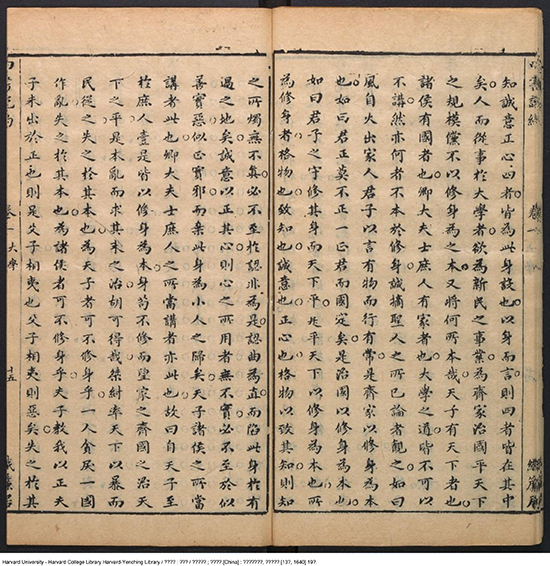 知誠意正心四者皆為此身設也以身而言則四者皆在其中
矣人而從事於大學者欲為新民之事業為齊家治國平天下
之規模儻不以修身為之本又將何所本哉天子有天下者也
諸侯有國者也卿大夫士庶人有家者也大學之道皆不可以
不講然亦何者不本於修身誠摘聖人之所已論者觀之如曰
風自火出家人君子以言有物而行有常是齊家以修身為本
也如曰君正莫不正一正君而國定矣是治國以修身為本也
如曰君子之守修其身而天下平是平天下以修身為本也
為修身者格物也致知也誠意也正心也格物以致其知則知
之所燭無不真必不至於認非為是認曲為直而陷此身於有
過之地矣誠意以正其心則心之所用者無不實必不至於似
善實惡似正實邪而棄此身為小人之歸矣天子諸侯之所當
講者此也卿大夫士庶人之所當講者亦此也故曰自天子至
於庶人壹是皆以修身為本身苟不修而望家之齊國之治天
下之平是本亂而求其末之治胡可得哉桀紂率天下以暴而
民從之失之於其本也為天子者可不修身乎一人貪戾一國
作亂失之於其本也為諸侯者可不修身乎夫子教我以正夫
子未出於正也則是父子相夷也父子相夷則惡矣失之於其
卷一 大學
十五
Harvard University - Harvard College Library Harvard-Yenching Library / ???? : ??? / ????? ; ????.[China] : ???????, ????? [13?, 1640] 19?